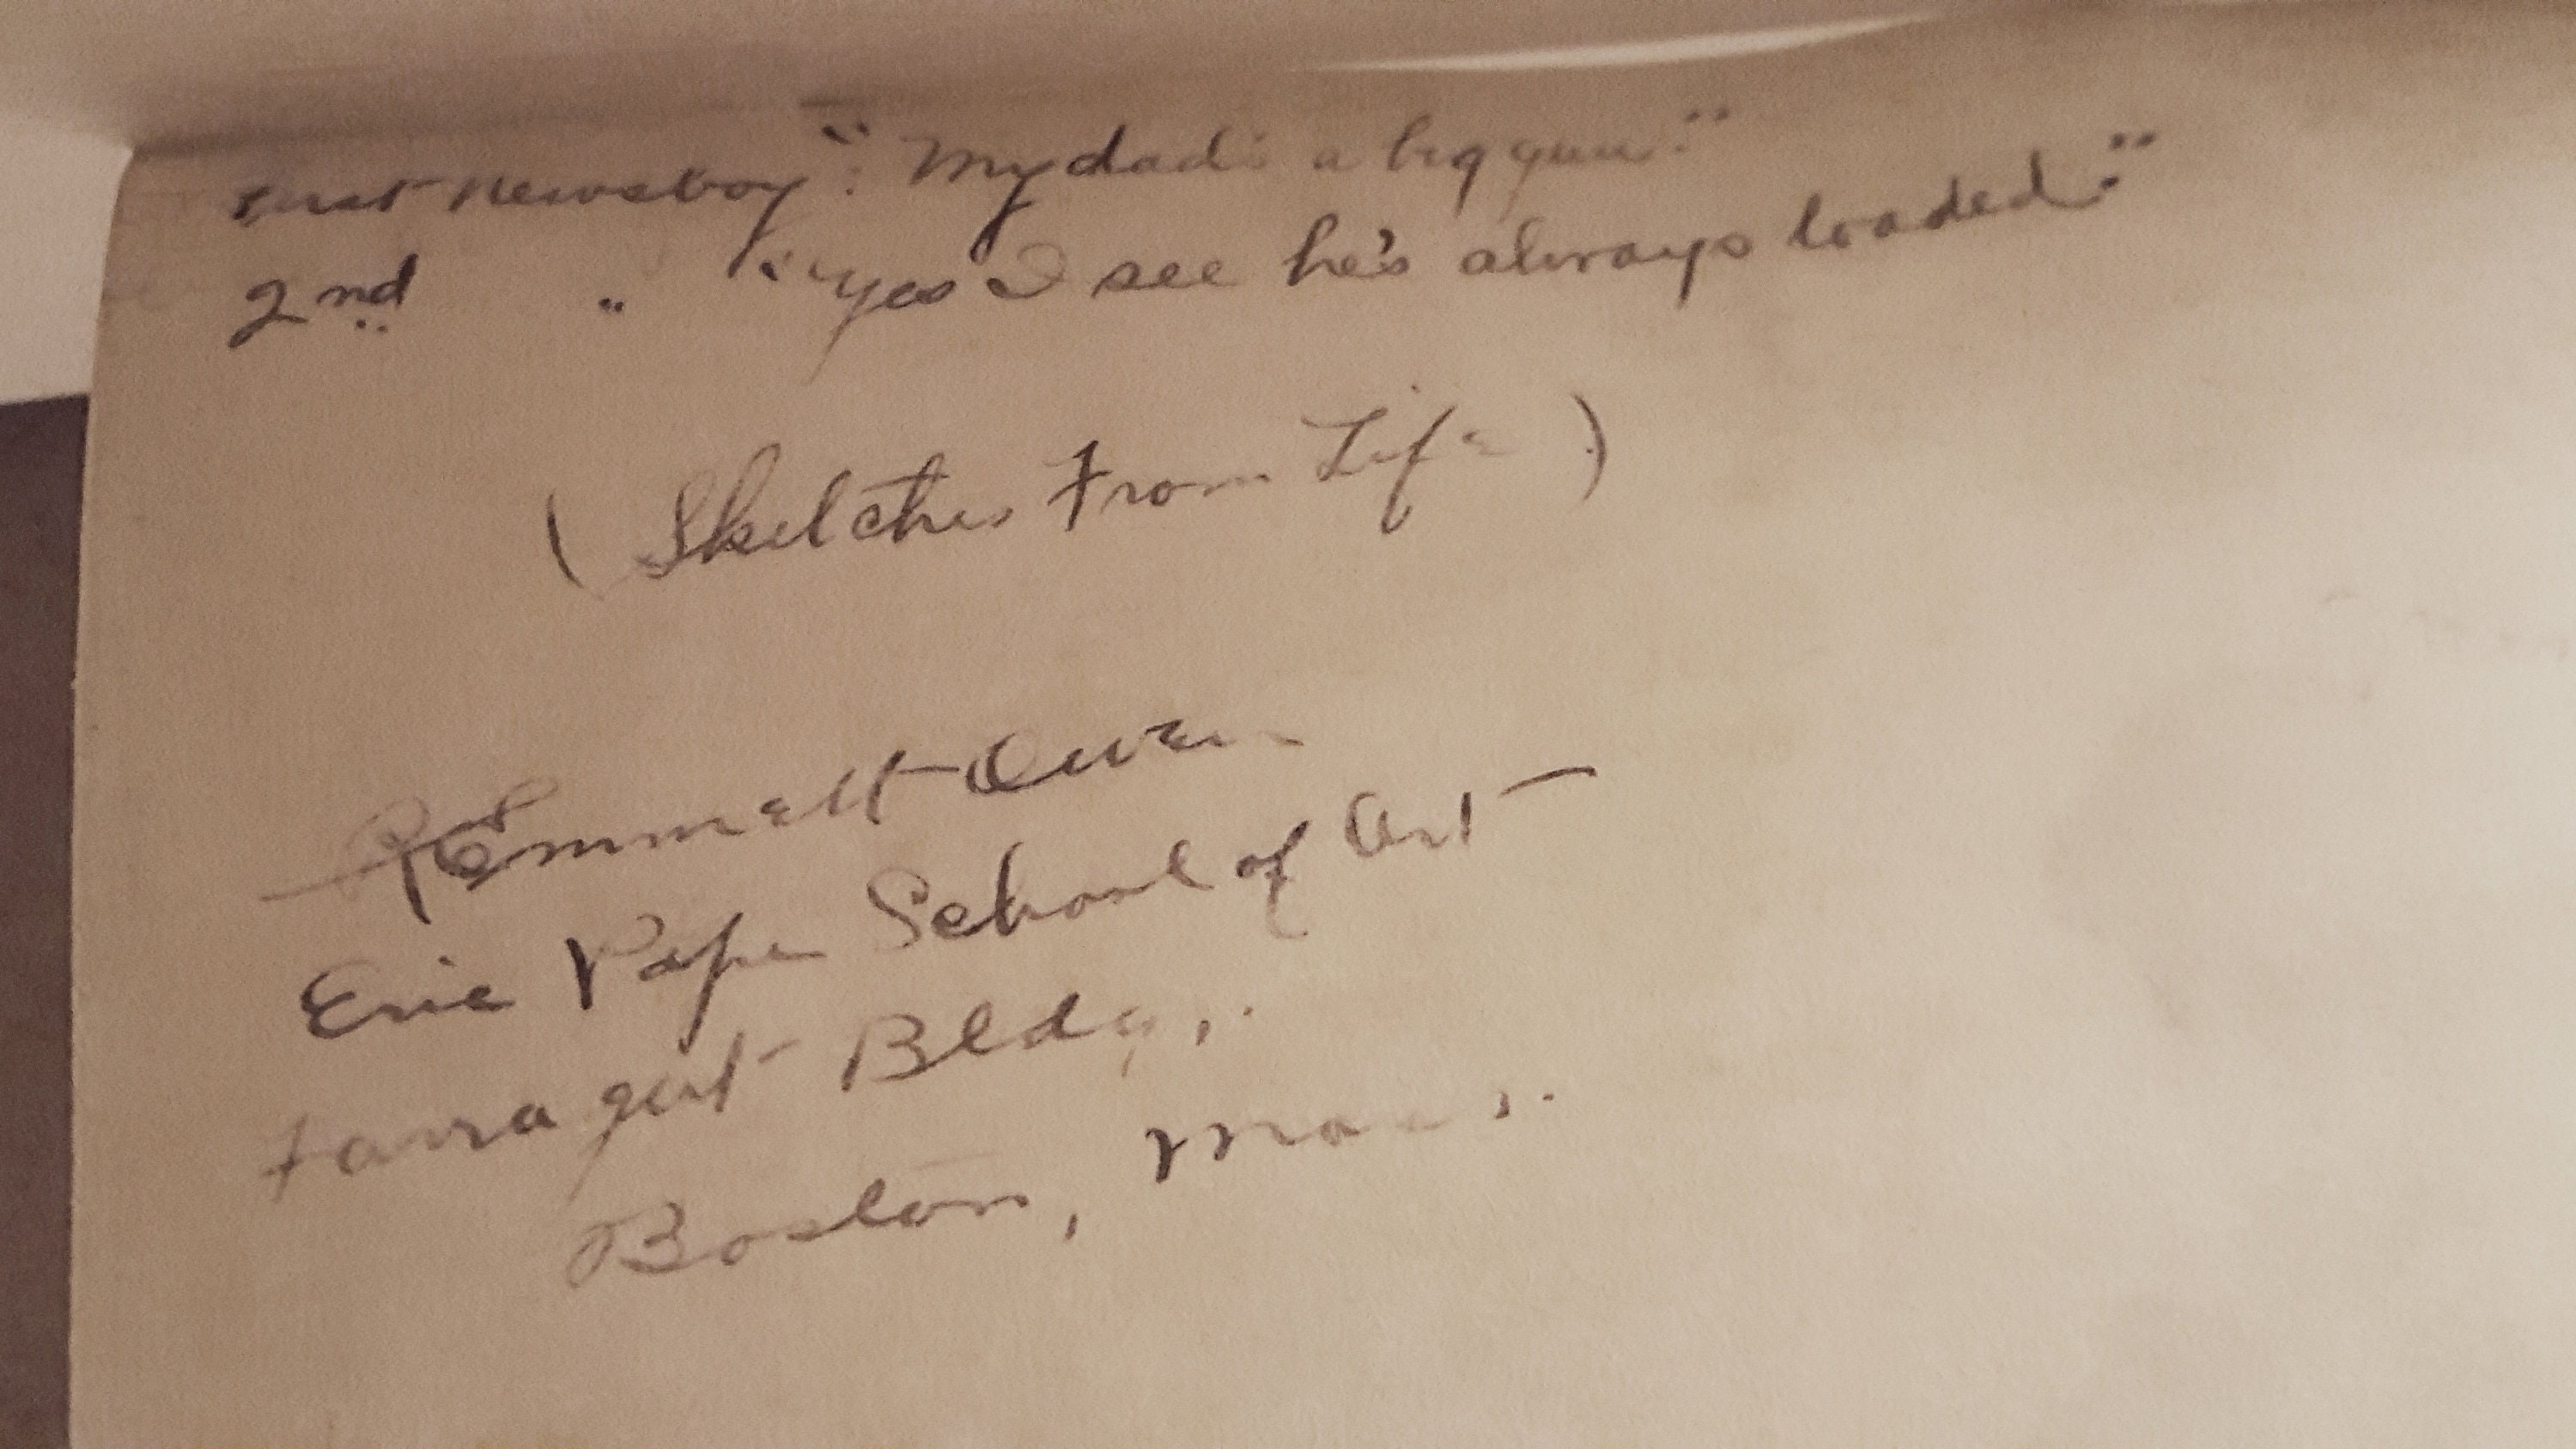 First Newsboy: "My dad's a big gun."
2nd " "Yes I see he's always loaded."
(Sketches From Life)
R Emmett Owen
Eric Pape School of Art
Farragut Bldg,.
Boston, Mass,.